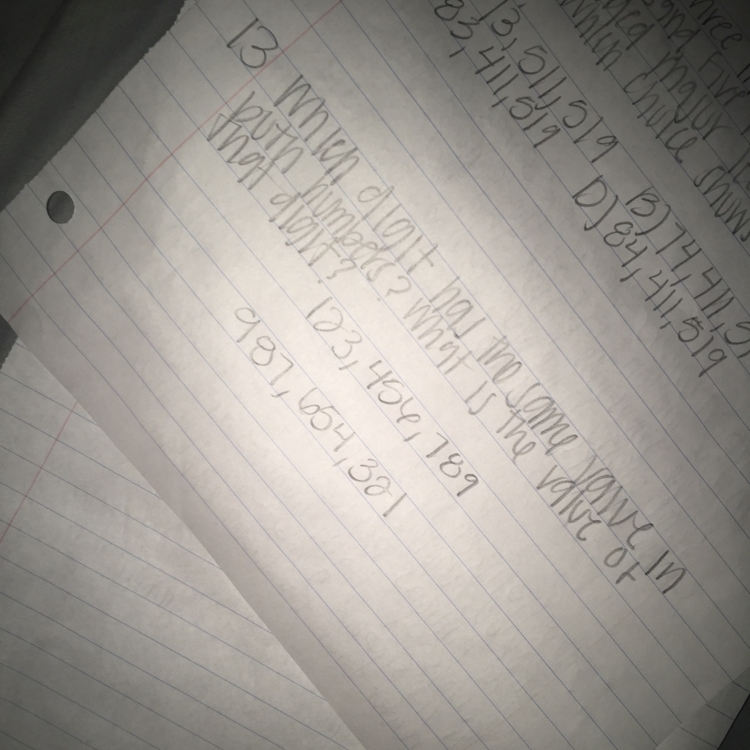 hree
and five
ated major
which choice shows
13,511,519 B) 74,411,5
83,411,519 D) 84,411,519
13 Which digit has the same value in
both numbers? What is the value of
that digit?
123,456,789
987,654,321